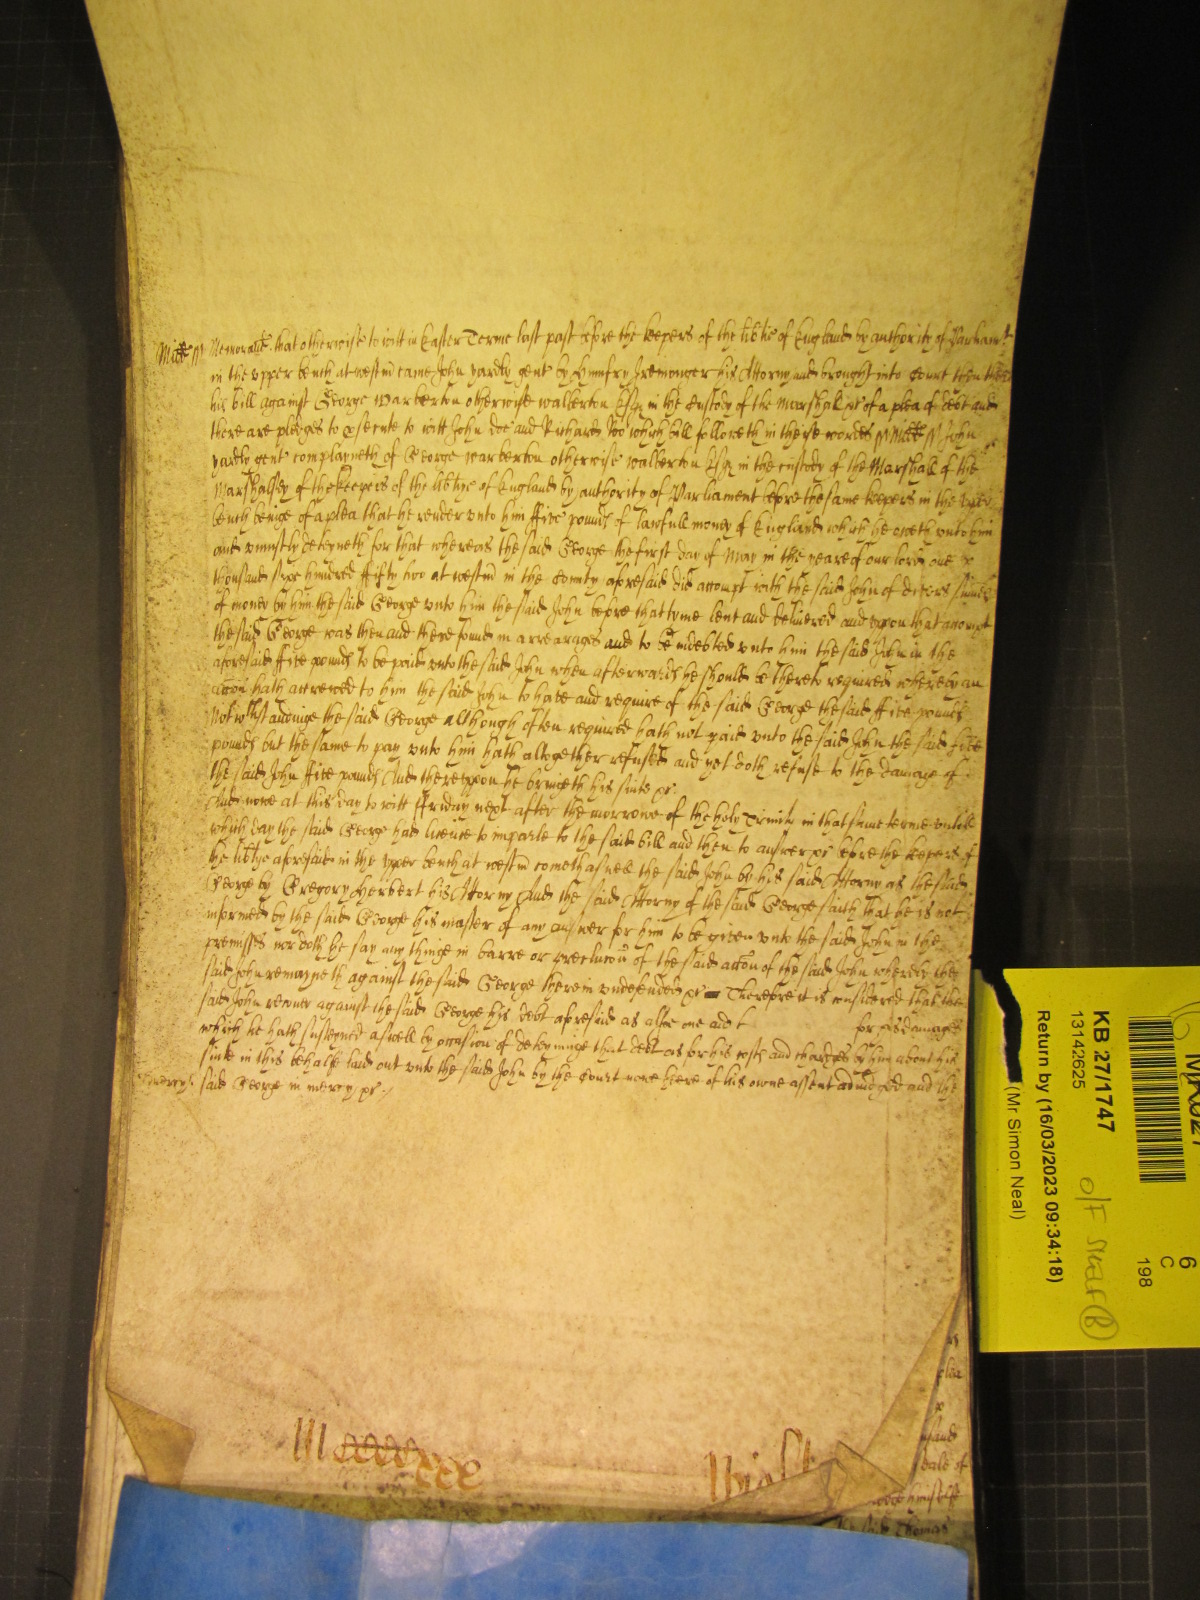 Midd ss Memorand that otherwise to witt in Easter Terme last past before the keepers of the libtie of England by authority of Parliamt
in the upper bench at westm came John yardly gent by Humfry Iremonger his Attorny and brought into Court then there
his bill against George Warberton otherwise walberton Esq in the custody of the Marshall &c of a plea of debt and
there are pledges to prosecute to witt John Doe and Richard Roo which bill followeth in theise wordes ss Midd ss John
yardly gent complayneth of George warberton otherwise walberton Esq in the custody of the Marshall of the
Marshalsey of the keepers of the libtye of England by authority of Parliament before the same keepers in the upper
bench beinge of a plea that he render unto him ffive pounds of lawfull money of England which he oweth unto him
and uniustly deteyneth for that whereas the said George the first day of May in the yeare of our lord one
thousand sixe hundred ffifty two at westm in the County aforesaid did accompt with the said John of divers summes
of money by him the said George unto him the said John before that tyme lent and delivered and upon that accompt
the said George was then and there found in arrearages and to be indebted unto him the said John in the
aforesaid ffive pounds to be paid unto the said John when afterwards he should be thereto required whereby an
accon hath accrewed to him the said John to have and require of the said George the said ffive pounds
Notwithstandinge the said George although often required hath not paid unto the said John the said five
pounds but the same to pay unto him hath altogether refused and yet doth refuse to the damage of
the said John ffive pounds And thereuppon he bringeth his suite &c
And nowe at this day to witt ffriday next after the morrowe of the holy Trinity in that same terme untill
which day the said George had licence to imparle to the said bill and then to answer &c before the keepers of
the libtye aforesaid in the upper bench at westm cometh aswell the said John by his said Attorny as the said
George by Gregory Herbert his Attorny And the said Attorny of the said George saith that he is not
informed by the said George his master of any answer for him to be given unto the said John in the
premisses nor doth he say any thinge in barre or preclucon of the said accon of the said John whereby the
said John remayneth against the said George therein undefended &c Therefore it is considered that the
said John recover against the said George his debt aforesaid as also one and t for his damages
which he hath susteyned aswell by occasion of deteyninge that debt as for his costs and chardges by him about his
suite in this behalfe laid out unto the said John by the Court nowe heere of his owne assent adiudged and the
mercy said George in mercy &c
plea
himselfe
the said Thomas
KB 27/1747
13142625
Return by (16/03/2023 09:34:18)
(Mr Simon Neal)
6
C
198